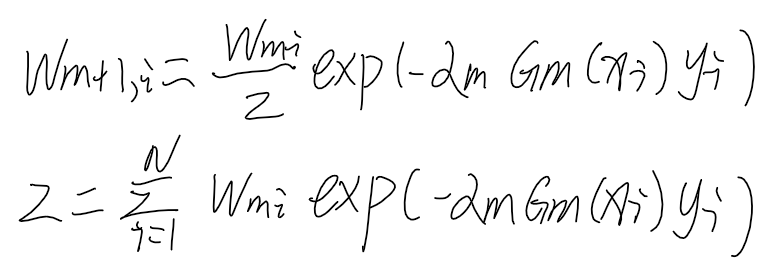 W_{m+1,i} = \frac{W_{mi}}{Z} exp(-α_m G_m(x_i) y_i)
Z = \sum_{i=1}^{N} W_{mi} exp(-α_m G_m(x_i) y_i)